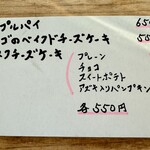 プルパイ 650
ゴのベイクドチーズケーキ 55
スクチーズケーキ
プレーン
チョコ
スイートポテト
アズキ入りパンプキン
各550円